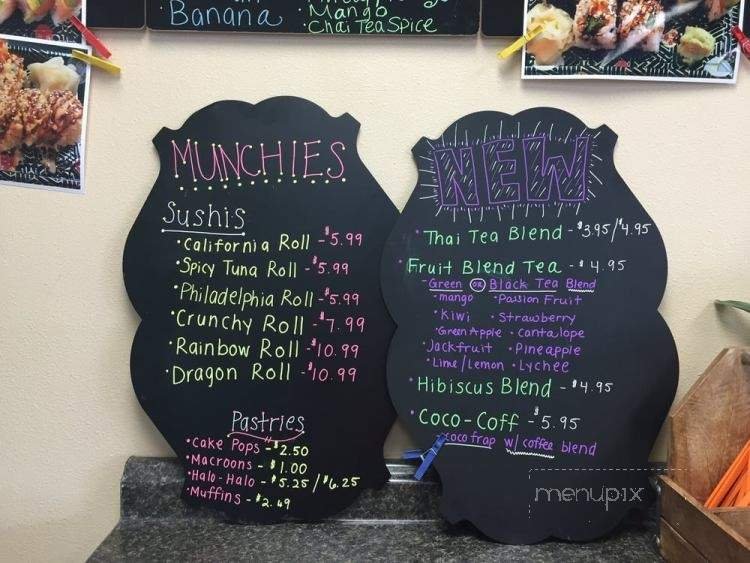 Banana
Mango
Chai Tea Spice
MUNCHIES
Sushis
• California Roll - $5.99
• Spicy Tuna Roll - $5.99
• Philadelphia Roll - $5.99
• Crunchy Roll - $7.99
• Rainbow Roll - $10.99
• Dragon Roll - $10.99
Pastries
• Cake Pops - $2.50
• Macroons - $1.00
• Halo-Halo - $5.25 / $6.25
• Muffins - $2.49
NEW
• Thai Tea Blend - $3.95/$4.95
• Fruit Blend Tea - $4.95
- Green OR Black Tea Blend
• mango • Passion Fruit
• Kiwi • Strawberry
• Green Apple • Cantalope
• Jackfruit • Pineapple
• Lime/Lemon • Lychee
• Hibiscus Blend - $4.95
• Coco-Coff - $5.95
coco frap w/ coffee blend
menupix